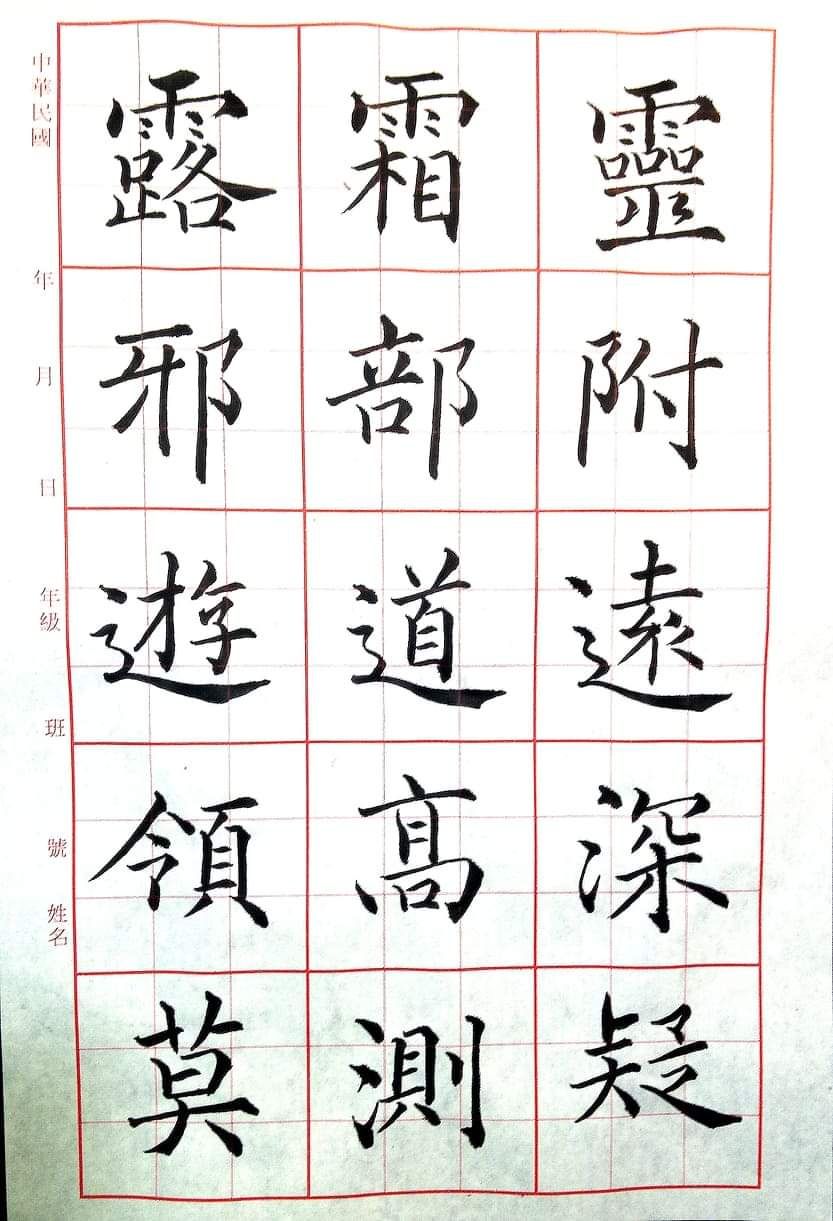 靈附遠深疑
霜部道高測
露邪遊領莫
中華民國 年 月 日 年級 班 號 姓名